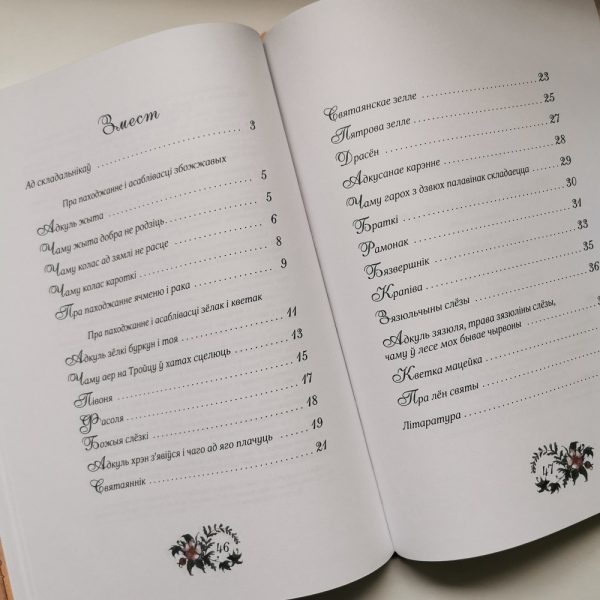 Змест
Ад складальнікаў 3
Пра паходжанне і асаблівасці збожжавых
Адкуль жыта 5
Чаму жыта добра не родзіць 5
Чаму колас ад зямлі не расце 6
Чаму колас кароткі 8
Пра паходжанне ячменю і рака 9
Пра паходжанне і асаблівасці зёлак і кветак
Адкуль зёлкі буркун і тоя 11
Чаму аер на Тройцу ў хатах сцелюць 13
Півоня 15
Фасоля 17
Божыя слёзкі 18
Адкуль хрэн з'явіўся і чаго ад яго плачуць 19
Святаяннік 21
46
Святаянскае зелле 23
Пятрова зелле 25
Драсён 27
Адкусанае карэнне 28
Чаму гарох з дзвюх палавінак складаецца 29
Браткі 30
Рамонак 31
Бязвершнік 33
Крапіва 35
Зязюльчыны слёзы 36
Адкуль зязюля, трава зязюліны слёзы,
чаму ў лесе мох бывае чырвоны
Кветка мацейка
Пра лён святы
Літаратура
47